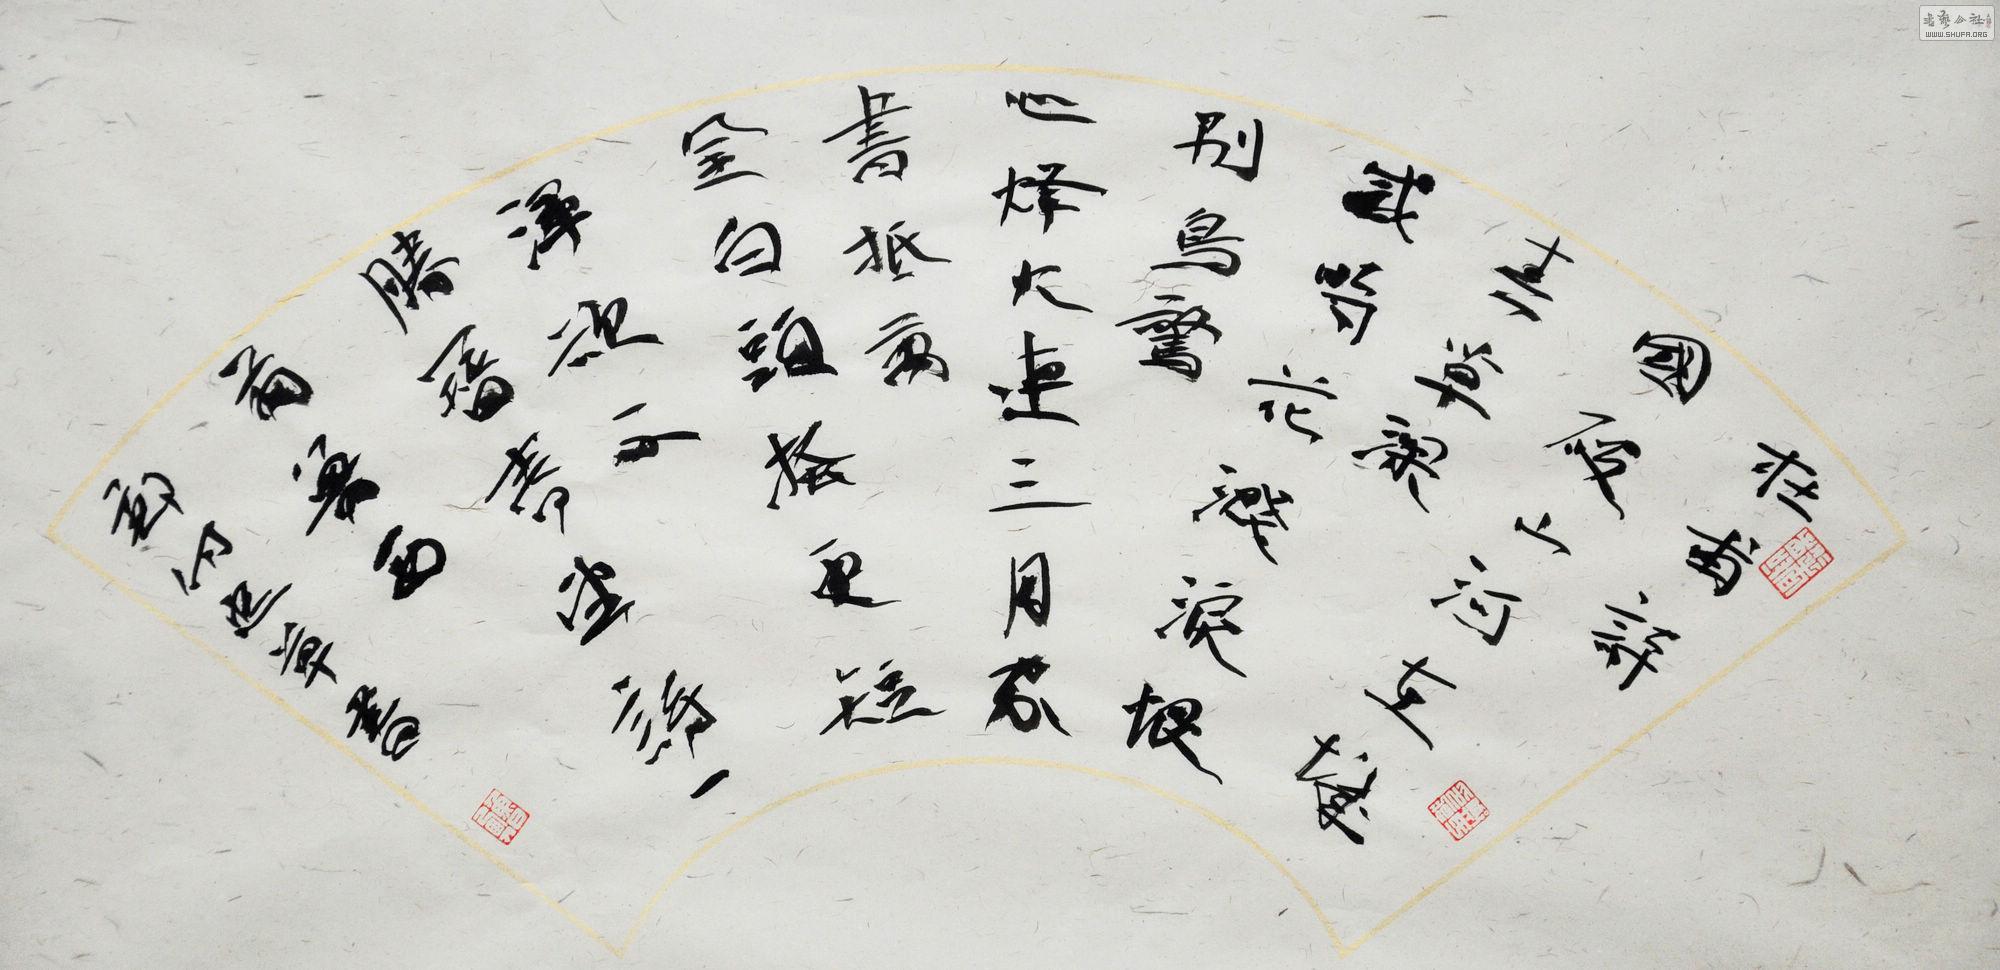 杜甫詩
國破山河在城
春草深
感時花濺淚恨
別鳥驚
心烽火連三月家
書抵萬
金白頭搔更短
渾欲不
勝簪春望詩一
首
章書
書藝公社
WWW.SHUFA.ORG